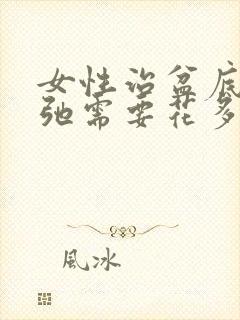 女性治盆底
弛需要花多
風冰